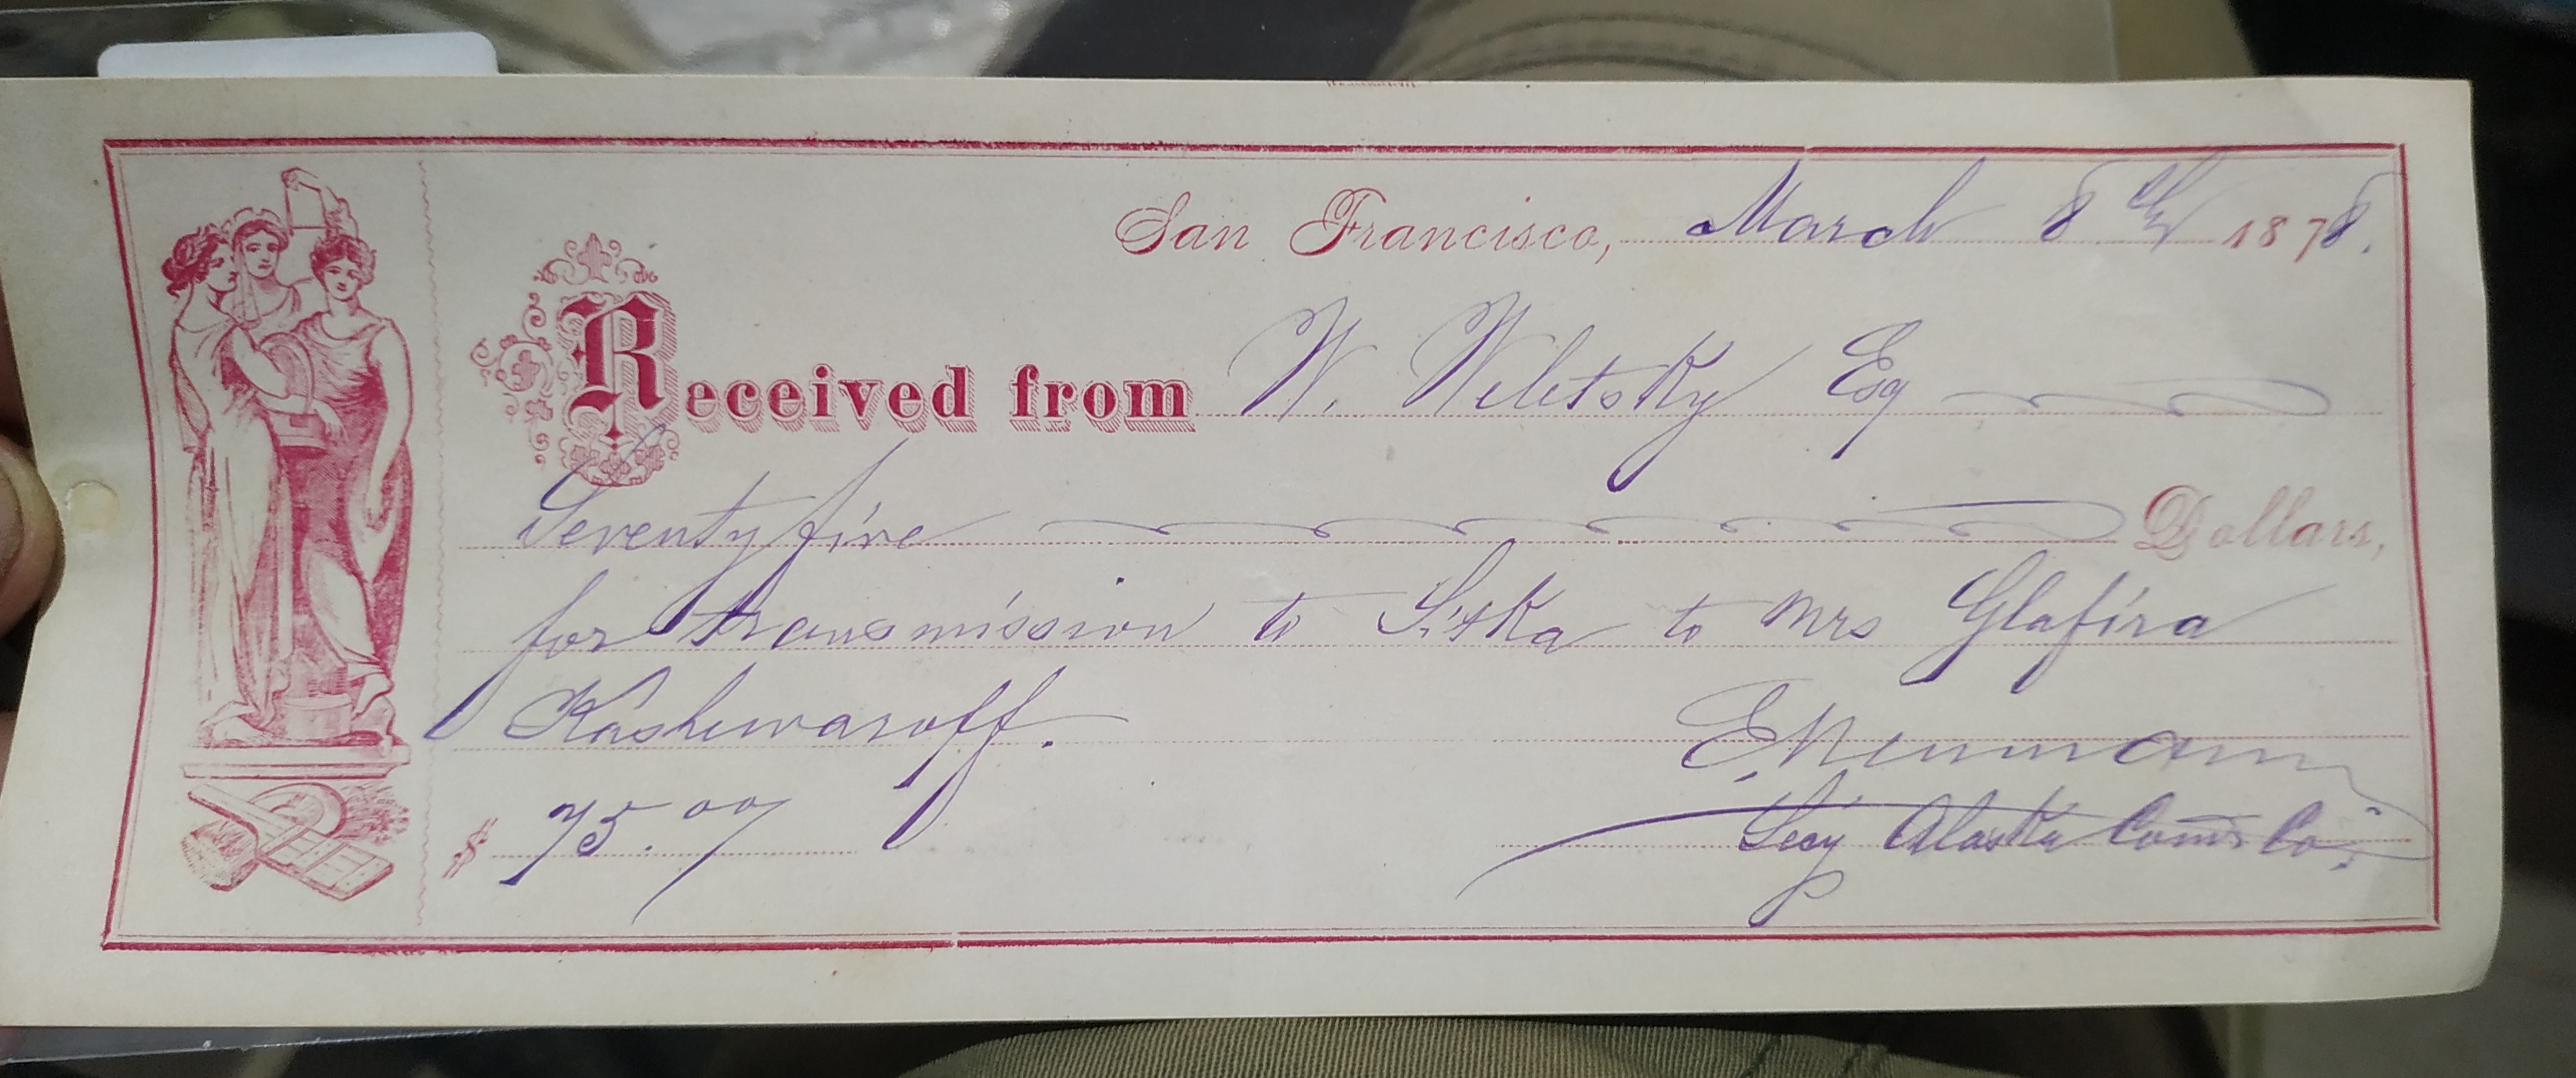 San Francisco, March 8th 1878.
Received from W. Weletsky Esq
Seventy five Dollars,
for transmission to Sitka to Mrs Glafira
Kashewaroff.
E. Neumann
$ 75.00 Secy Alaska Coml Co.